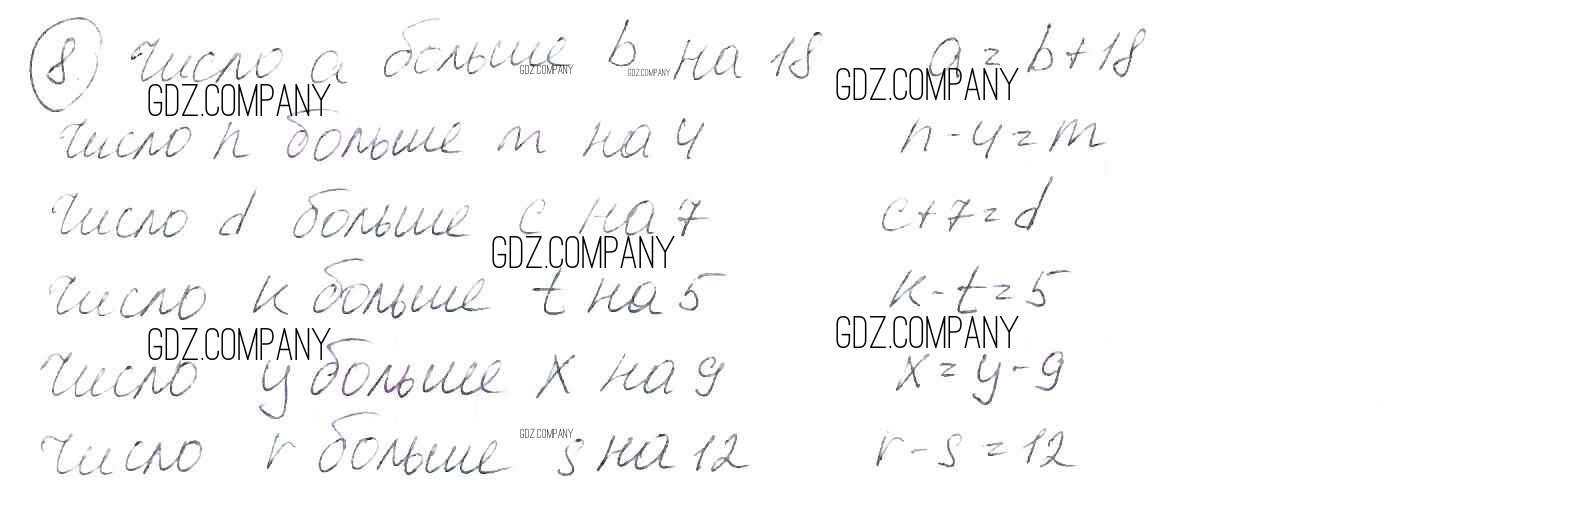 8 Число a больше b на 18 a = b + 18
GDZ.COMPANY GDZ.COMPANY
GDZ.COMPANY GDZ.COMPANY
Число n больше m на 4 n - 4 = m
Число d больше c на 7 c + 7 = d
GDZ.COMPANY
Число k больше t на 5 k - t = 5
GDZ.COMPANY GDZ.COMPANY
Число y больше x на 9 x = y - 9
GDZ.COMPANY
Число r больше s на 12 r - s = 12